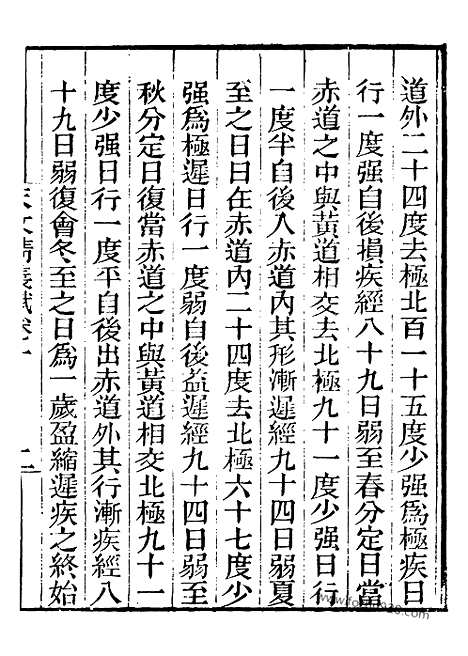 道外二十四度去極北百一十五度少强爲極疾日
行一度强自後損疾經八十九日弱至春分定日當
赤道之中與黃道相交去北極九十一度少强日行
一度半自後入赤道內其形漸遲經九十四日弱夏
至之日日在赤道內二十四度去北極六十七度少
强爲極遲日行一度弱自後益遲經九十四日弱至
秋分定日復當赤道之中與黃道相交北極九十一
度少强日行一度平自後出赤道外其行漸疾經八
十九日弱復會冬至之日爲一歲盈縮遲疾之終始
天文精義賦卷一
二